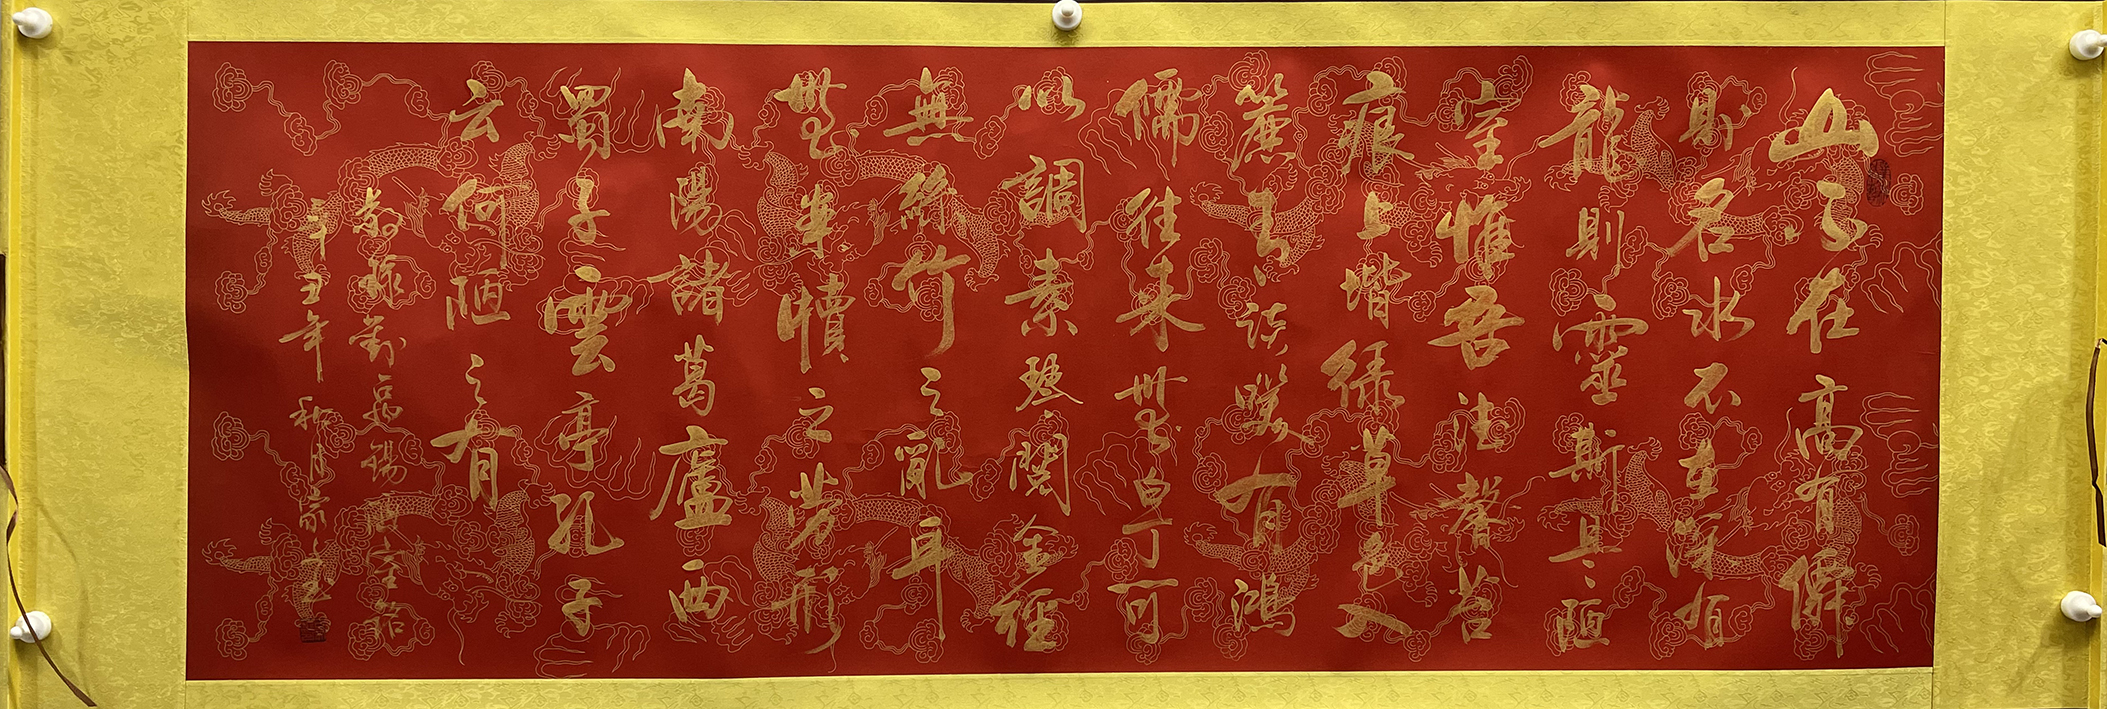 山不在高有僊
則名水不在深有
龍則靈斯是陋
室惟吾德馨苔
痕上堦緑草色入
簾青談笑有鴻
儒往来無白丁可
以調素琴閱金經
無絲竹之亂耳
無案牘之勞形
南陽諸葛廬西
蜀子雲亭孔子
云何陋之有
敬録劉禹錫陋室銘
辛丑年秋月